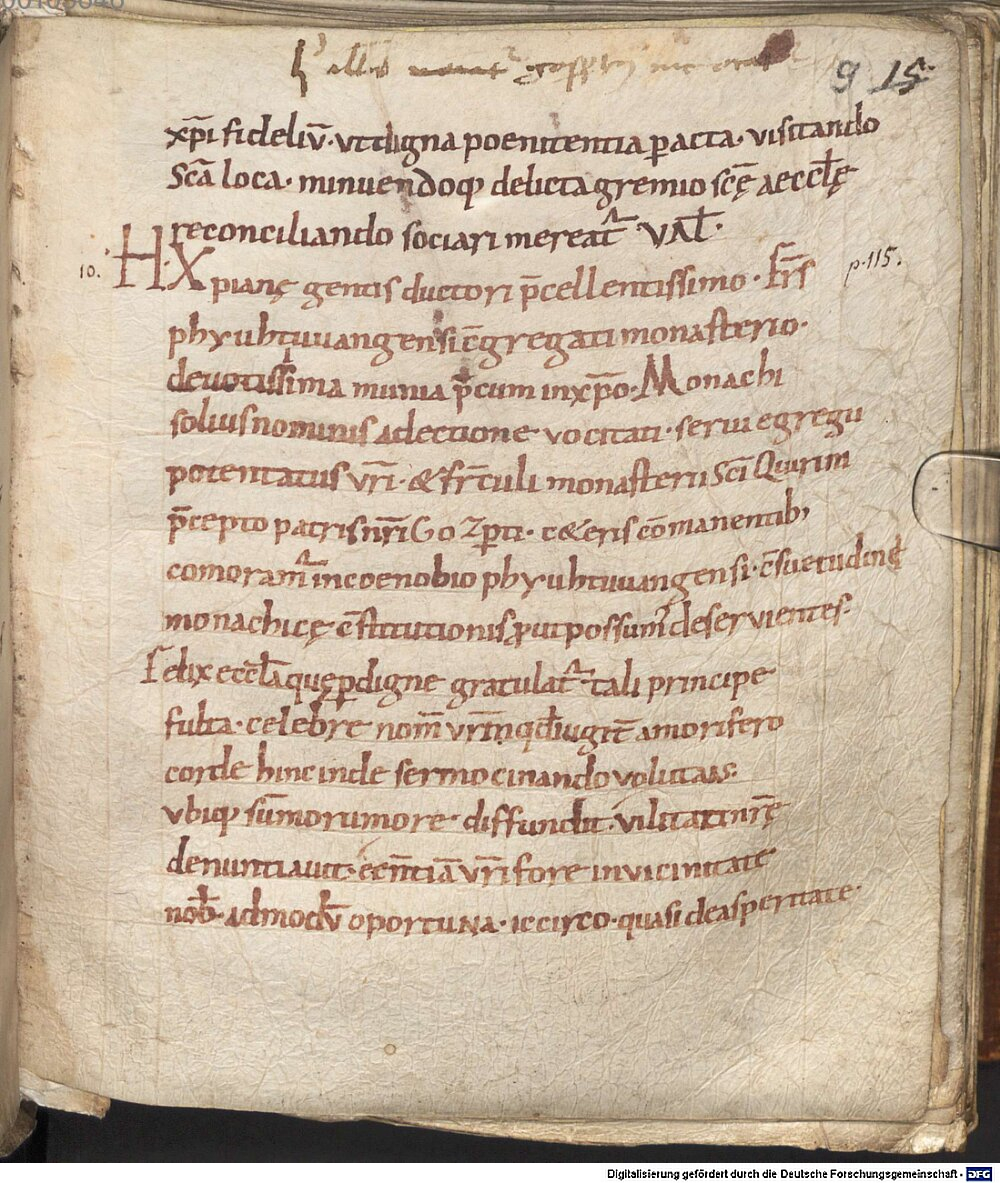 9 15.
xp̄i fideliū· ut digna poenitentia pacta· visitando
Scā loca· minuendoq; delicta gremio scę aeccłę
reconciliando sociari mereat̃ VAL̃·
10. H· Xpianę gentis ductori p̄cellentissimo· Fr̄s p. 115.
phyuhtuuangensi c̄gregati monasterio·
devotissima munia p̄cum in xp̄o· Monachi
solius nominis adectione vocitati· servi egregii
potentatus vr̄i· & fr̄culi monasterii Sci Quirini
p̄cepto patris nr̄i Gozpti· c&eris cōmanentib;
comoram̃ in coenobio phyuhtuuangensi· c̄suetudinę
monachicę c̄stitutionis put possum̃ deservientes·
Felix eccłā quę pdigne gratulat̃ tali principe
fulta· celebre nom̄ vr̄m qđ iugit̃ amorifero
corde hinc inde sermocinando volutais·
ubiq; sūmo rumore diffundit· vilitati nr̄ę
denuntiavit· ecn̄tiā vr̄i fore in vicinitate
nob̄· admodū oportuna· iccirco· quasi de asperitate·
Digitalisierung gefördert durch die Deutsche Forschungsgemeinschaft - DFG